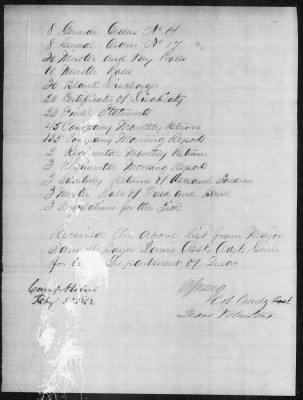 8 General Orders No 14
8 General Orders No 17
20 Muster and Pay Rolls
10 Muster Rolls
30 Blank Discharges
20 Certificates of Disability
23 Final Statements
15 Company Monthly Returns
135 Company Morning Reports
2 Regimental Monthly Returns
3 Regimental Morning Report
2 Returns of Deceased Soldiers
3 Muster Roll of Field and Staff
3 Requisitions for the Sick
Received the above list from Major
Saml Boyer Davis Asst. Adt. Genl
for Department of Texas
Camp Hebert
Feby 1862
Col Comdg
Texas Volunteers